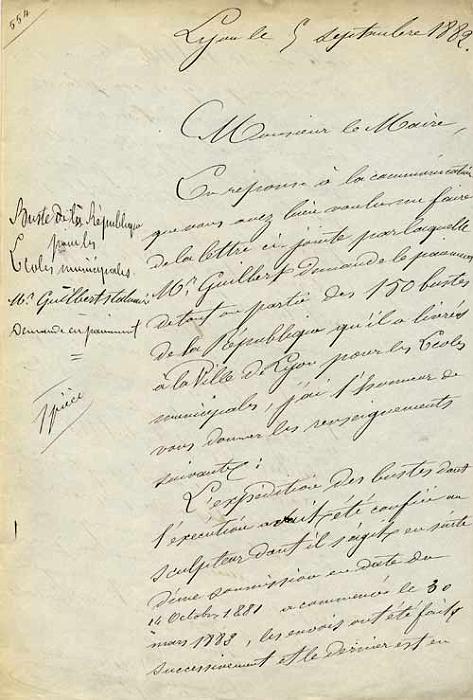 554
Lyon le 5 septembre 1882.
Monsieur le Maire,
Buste de la République
pour les
Écoles municipales
Mr Guilbert statuaire
Demande en paiement
=
1 pièce
En réponse à la communication
que vous avez bien voulu me faire
de la lettre ci-jointe par laquelle
Mr. Guilbert demande le paiement
de tout ou partie des 150 bustes
de la République qu'il a livrés
à la Ville de Lyon pour les Écoles
municipales, j'ai l'honneur de
vous donner les renseignements
suivants:
L'expédition des bustes dont
l'exécution avait été confiée au
sculpteur dont il s'agit en suite
d'une soumission en date du
14 Octobre 1881 a commencé le 30
mars 1882, les envois ont été faits
successivement et le dernier est en